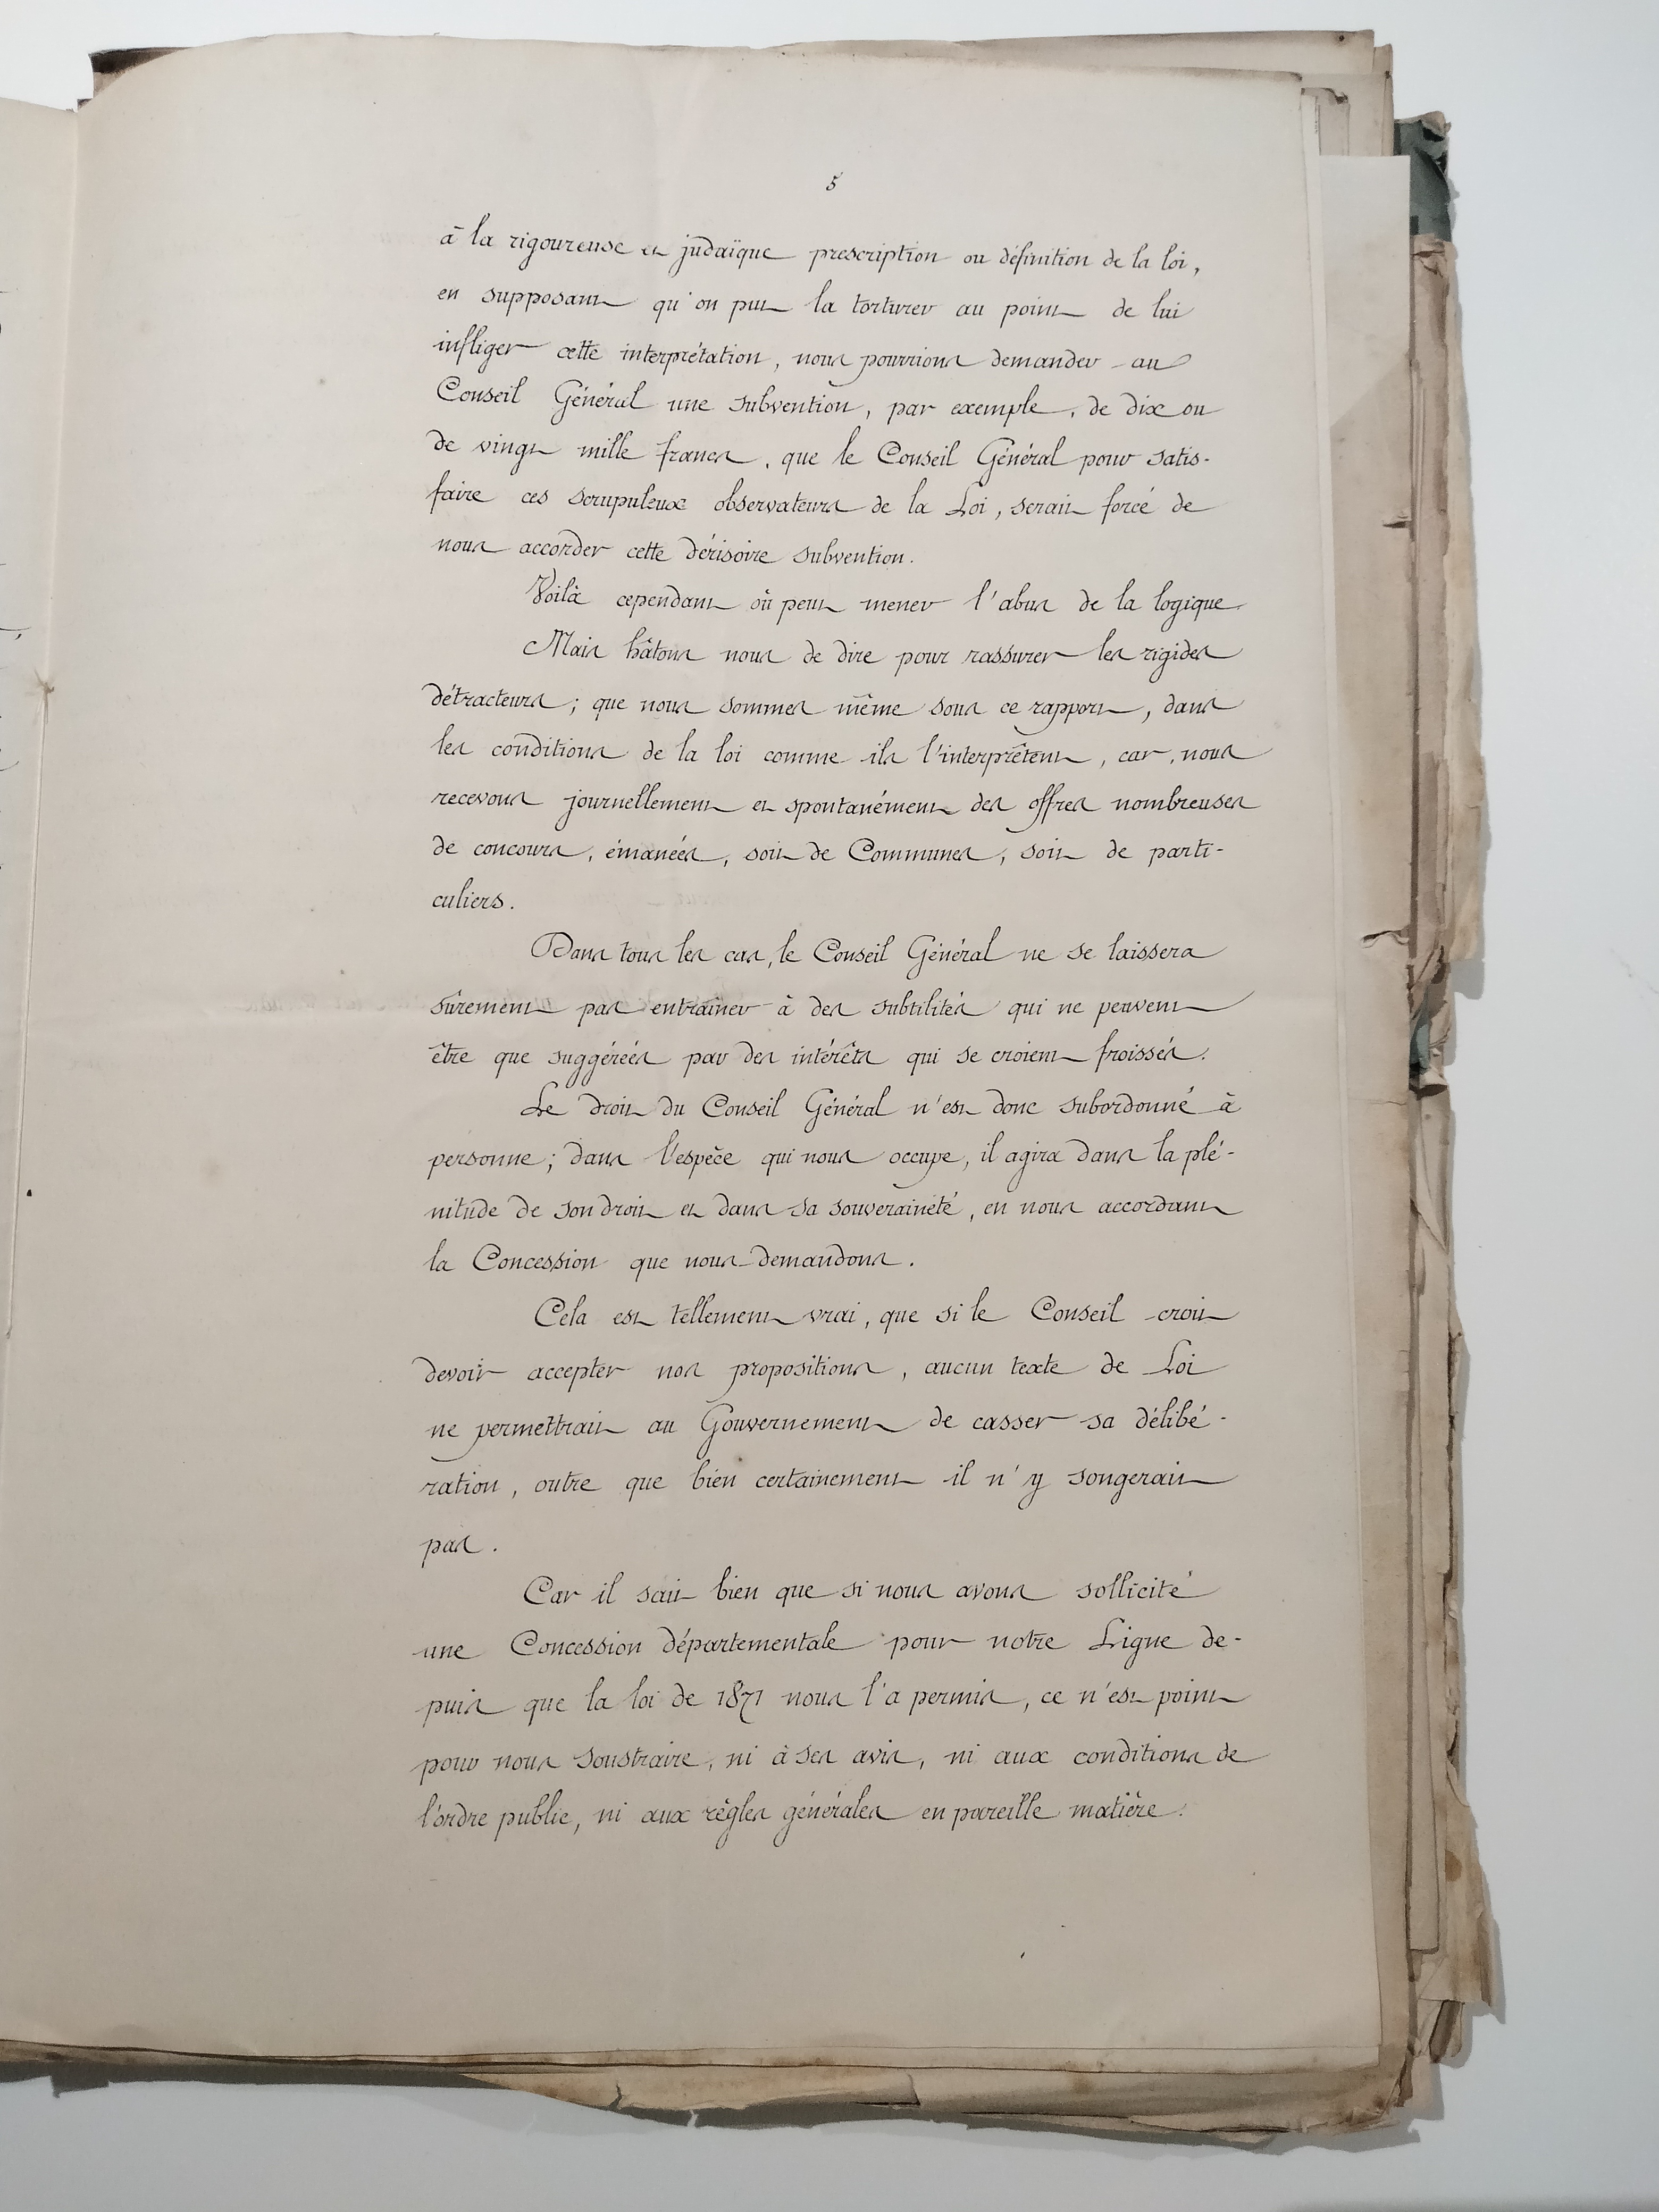 5
à la rigoureuse et judaïque prescription ou définition de la loi,
en supposant qu'on put la torturer au point de lui
infliger cette interprétation, nous pourrions demander au
Conseil Général une subvention, par exemple, de dix ou
de vingt mille francs, que le Conseil Général pour satis-
faire ces scrupuleux observateurs de la Loi, serait forcé de
nous accorder cette dérisoire subvention.
Voilà cependant où peut mener l'abus de la logique.
Mais hâtons nous de dire pour rassurer les rigides
détracteurs; que nous sommes même sous ce rapport, dans
les conditions de la loi comme ils l'interprêtent, car, nous
recevons journellement et spontanément des offres nombreuses
de concours, émanées, soit de Communes, soit de parti-
culiers.
Dans tous les cas, le Conseil Général ne se laissera
sûrement pas entraîner à des subtilités qui ne peuvent
être que suggérées par des intérêts qui se croient froissés.
Le droit du Conseil Général n'est donc subordonné à
personne; dans l'espèce qui nous occupe, il agira dans la plé-
nitude de son droit et dans sa souveraineté, en nous accordant
la Concession que nous demandons.
Cela est tellement vrai, que si le Conseil croit
devoir accepter nos propositions, aucun texte de Loi
ne permettrait au Gouvernement de casser sa délibé-
ration, outre que bien certainement il n'y songerait
pas.
Car il sait bien que si nous avons sollicité
une Concession départementale pour notre Ligne de-
puis que la loi de 1871 nous l'a permis, ce n'est point
pour nous soustraire, ni à ses avis, ni aux conditions de
l'ordre public, ni aux règles générales en pareille matière.